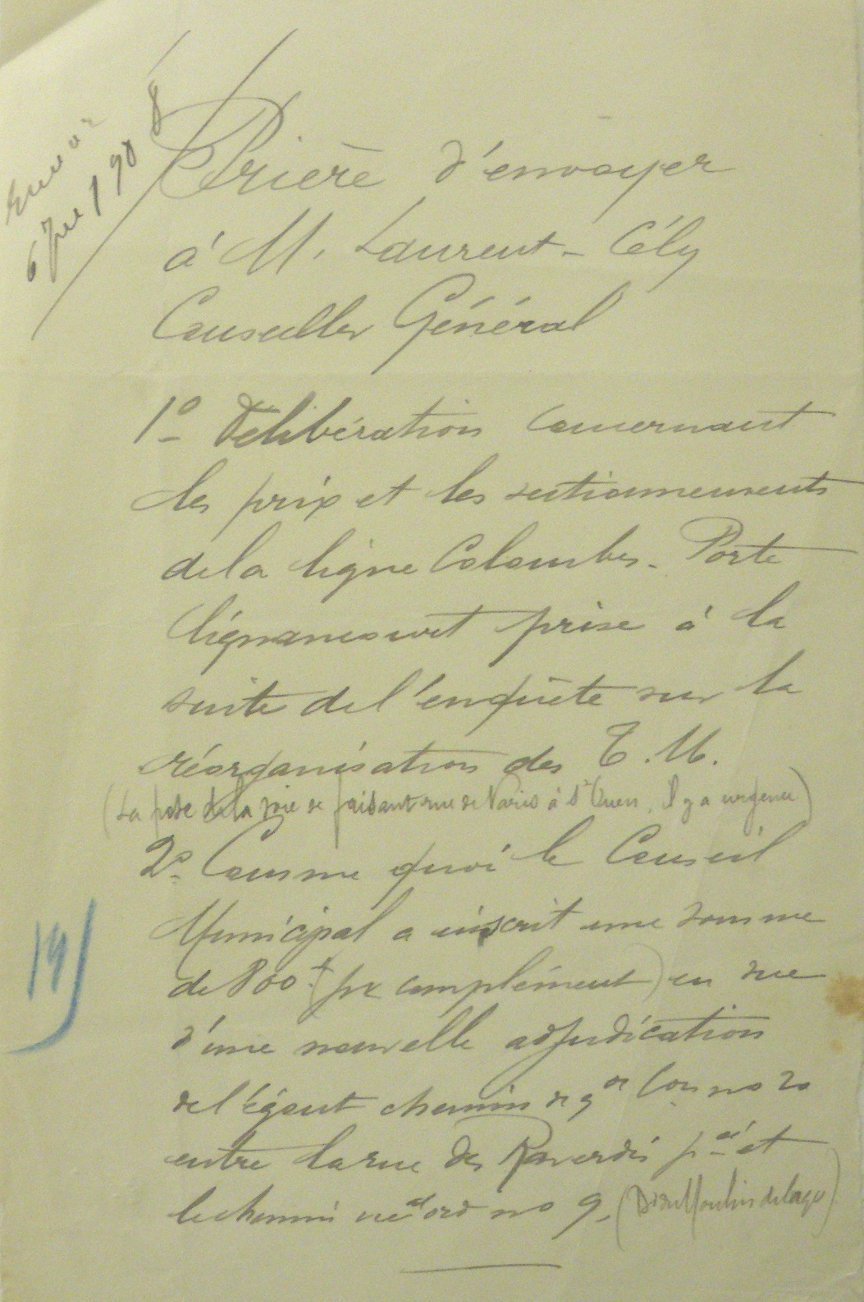 Envoi
6 Jer 1908
Prière d'envoyer
à M. Laurent-Cély
Conseiller Général
1º Délibération concernant
les prix et les sectionnements
de la ligne Colombes-Porte
Clignancourt prise à la
suite de l'enquête sur la
réorganisation des T.M.
(La pose de la voie se faisant rue de Paris à St Ouen, il y a urgence)
2º Comme quoi le Conseil
Municipal a inscrit une somme
de 800f (pr complément) en vue
d'une nouvelle adjudication
de l'égout chemin de gde Con no 20
entre la rue des
le chemin no 9. (Dit du Moulin de la
19